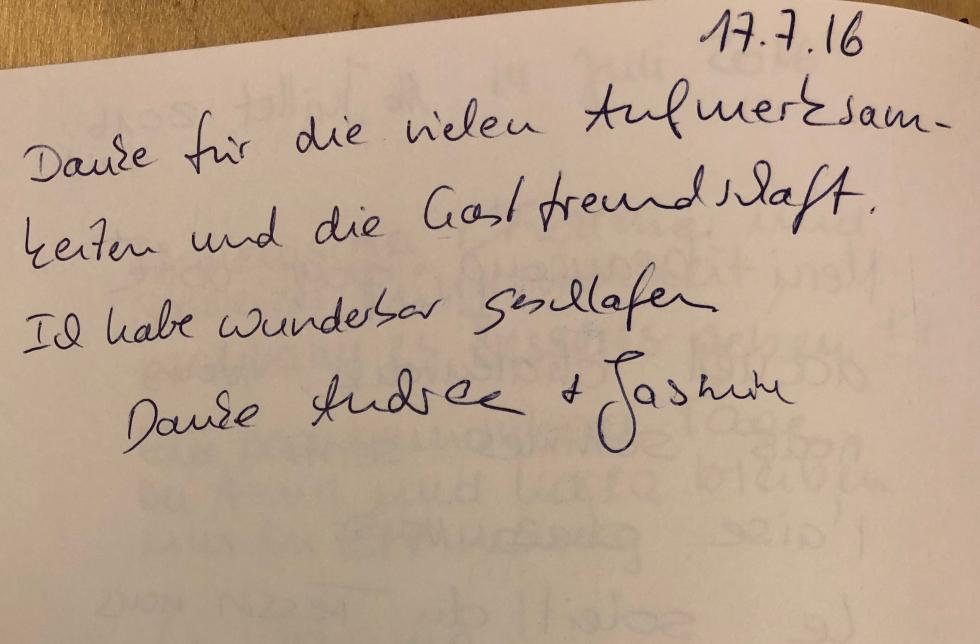 17.7.16
Danke für die vielen Aufmerksam-
keiten und die Gastfreundschaft.
Ich habe wunderbar geschlafen
Danke Andrea + Jasmin